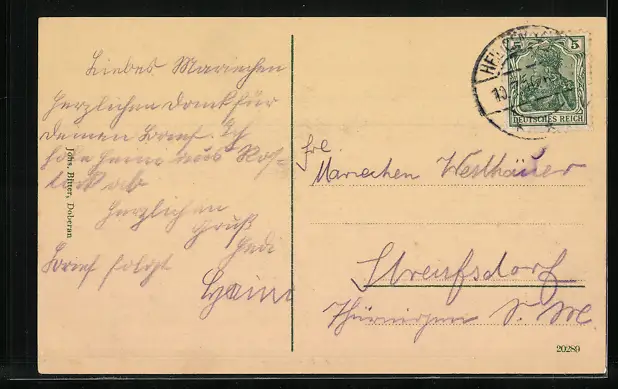 Liebes Mariechen
herzlichen Dank für
deinen Brief. Ich
hole Heini aus Ros-
tock ab
Herzlichen
Gruß
Brief folgt
Heini
Johs. Bliter, Doberan
5
DEUTSCHES REICH
Frl
Mariechen Westhäuser
Streufsdorf
Thüringen S. M.
20280